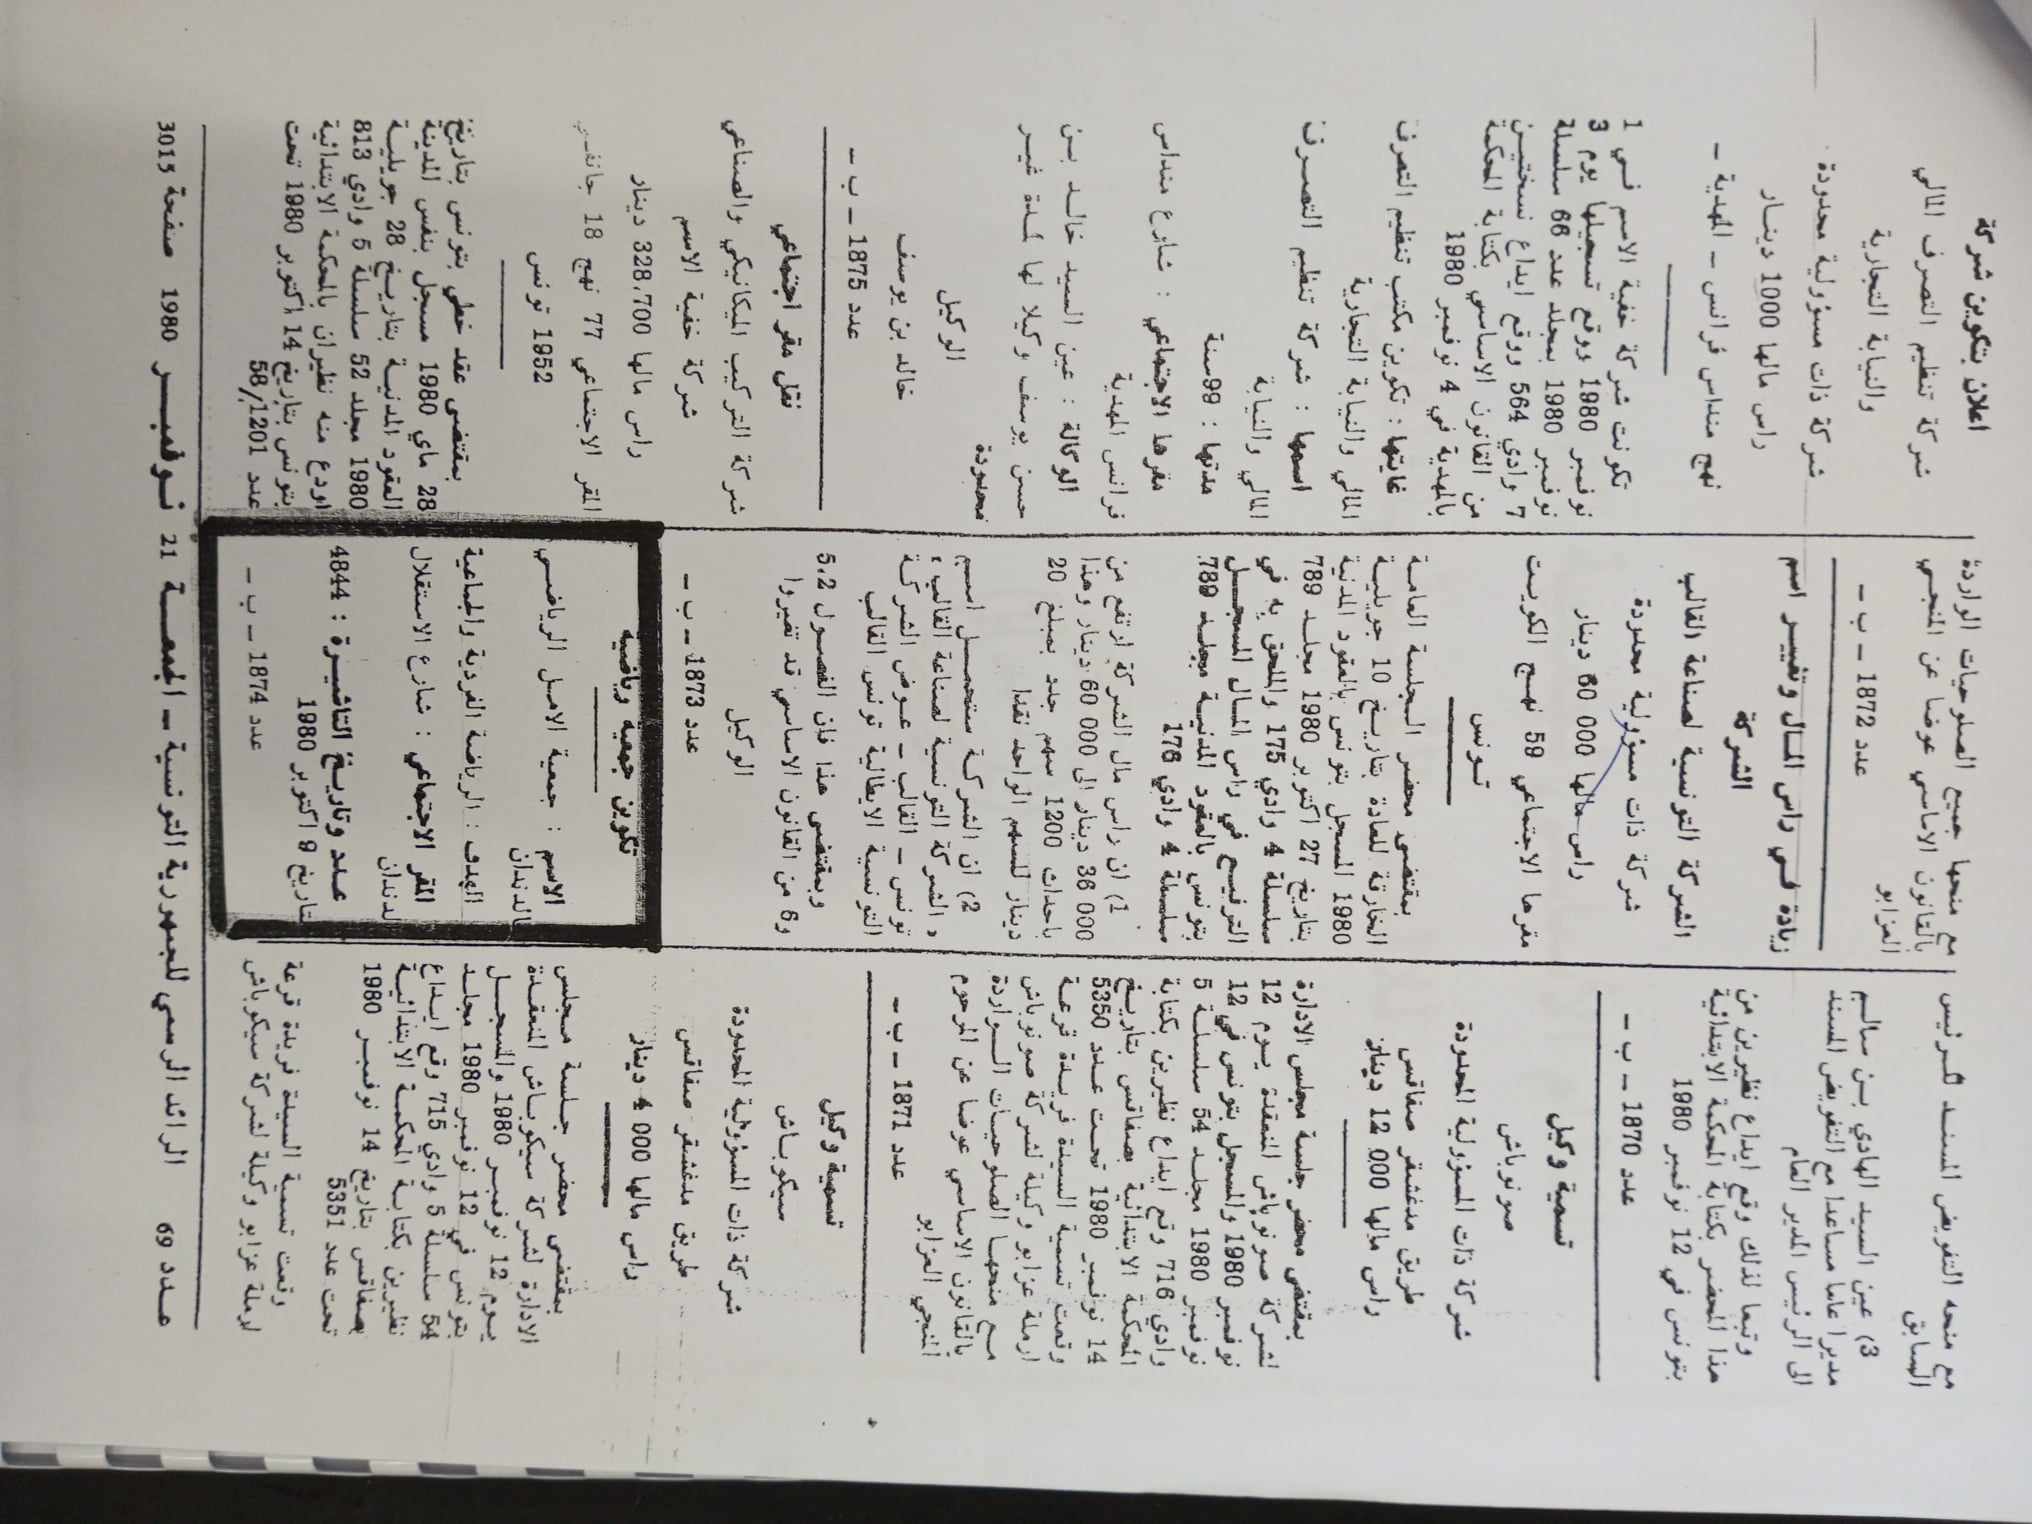 مع منحه التفويض المسند للرئيس
السابق
3) عين السيد الهادي بن سالم
مديرا عاما مساعدا مع التفويض المسند
الى الرئيس المدير العام
وتبعا لذلك وقع ايداع نظيرين من
هذا المحضر بكتابة المحكمة الابتدائية
بتونس في 12 نوفمبر 1980
عدد 1870 ــ ب ــ
تسمية وكيل
صونوباش
شركة ذات المسؤولية المحدودة
طريق مدغشقر صفاقس
راس مالها 000 12 دينار
بمقتضى محضر جلسة مجلس الادارة
لشركة صونوباش المنعقدة يوم 12
نوفمبر 1980 والمسجل بتونس في 12
نوفمبر 1980 مجلد 54 سلسلة 5
وادي 716 وقع ايداع نظيرين بكتابة
المحكمة الابتدائية بصفاقس بتاريخ
14 نوفمبر 1980 تحت عدد 5350
وقعت تسمية السيدة فريدة قرعة
ارملة عزابو وكيلة لشركة صونوباش
مع منحها الصلوحيات الواردة
بالقانون الاساسي عوضا عن المرحوم
المنجي العزابو
عدد 1871 ــ ب ــ
تسمية وكيل
سيكوباش
شركة ذات المسؤولية المحدودة
طريق مدغشقر صفاقس
راس مالها 000 4 دينار
بمقتضى محضر جلسة مجلس
الادارة لشركة سيكوباش المنعقدة
يوم 12 نوفمبر 1980 والمسجل
بتونس في 12 نوفمبر 1980 مجلد
54 سلسلة 5 وادي 715 وقع ايداع
نظيرين بكتابة المحكمة الابتدائية
بصفاقس بتاريخ 14 نوفمبر 1980
تحت عدد 5351
وقعت تسمية السيدة فريدة قرعة
ارملة عزابو وكيلة لشركة سيكوباش
مع منحها جميع الصلوحيات الواردة
بالقانون الاساسي عوضا عن المنجي
العزابو
عدد 1872 ــ ب ــ
زيادة في راس المال وتغيير اسم
الشركة
الشركة التونسية لصناعة القالب
شركة ذات مسؤولية محدودة
راس مالها 000 60 دينار
مقرها الاجتماعي 59 نهج الكويت
تونس
بمقتضى محضر الجلسة العامة
الخارقة للعادة بتاريخ 10 جويلية
1980 المسجل بتونس بالعقود المدنية
بتاريخ 27 اكتوبر 1980 مجلد 789
سلسلة 4 وادي 175 والملحق به في
الترفيع في راس المال المسجل
بتونس بالعقود المدنية مجلد 789
سلسلة 4 وادي 176
1) ان راس مال الشركة ارتفع من
000 36 دينار الى 000 60 دينار وهذا
باحداث 1200 سهم جدد بمبلغ 20
دينار للسهم الواحد نقدا
2) ان الشركة ستحمل اسم
« الشركة التونسية لصناعة القالب ،
تونس ــ القالب ــ عوض الشركة
التونسية الايطالية تونس القالب
وبمقتضى هذا فان الفصول 5،2
و6 من القانون الاساسي قد تغيروا
الوكيل
عدد 1873 ــ ب ــ
تكوين جمعية رياضية
الاسم : جمعية الامل الرياضي
بالدندان
الهدف : الرياضة الفردية والجماعية
المقر الاجتماعي : شارع الاستقلال
الدندان
عدد وتاريخ التاشيرة : 4844
بتاريخ 9 اكتوبر 1980
عدد 1874 ــ ب ــ
اعلان بتكوين شركة
شركة تنظيم التصرف المالي
والنيابة التجارية
شركة ذات مسؤولية محدودة
راس مالها 1000 دينار
نهج منداس فرانس ــ المهدية ــ
تكونت شركة خفية الاسم في 1
نوفمبر 1980 ووقع تسجيلها يوم 3
نوفمبر 1980 بمجلد عدد 66 سلسلة
7 وادي 564 ووقع ايداع نسختين
من القانون الاساسي بكتابة المحكمة
بالمهدية في 4 نوفمبر 1980
غايتها : تكوين مكتب تنظيم التصرف
المالي والنيابة التجارية
اسمها : شركة تنظيم التصرف
المالي والنيابة
مدتها : 99 سنة
مقرها الاجتماعي : شارع منداس
فرانس المهدية
الوكالة : عين السيد خالد بن
حسن يوسف وكيلا لها لمدة غير
محدودة
الوكيل
خالد بن يوسف
عدد 1875 ــ ب ــ
نقل مقر اجتماعي
شركة التركيب الميكانيكي والصناعي
شركة خفية الاسم
راس مالها 328.700 دينار
المقر الاجتماعي 77 نهج 18 جانفي
1952 تونس
بمقتضى عقد خطي بتونس بتاريخ
28 ماي 1980 مسجل بنفس المدينة
العقود المدنية بتاريخ 28 جويلية
1980 مجلد 52 سلسلة 5 وادي 813
اودع منه نظيران بالمحكمة الابتدائية
بتونس بتاريخ 14 اكتوبر 1980 تحت
عدد 1201/58
عدد 69 الرائد الرسمي للجمهورية التونسية ــ الجمعة 21 نوفمبر 1980 صفحة 3015